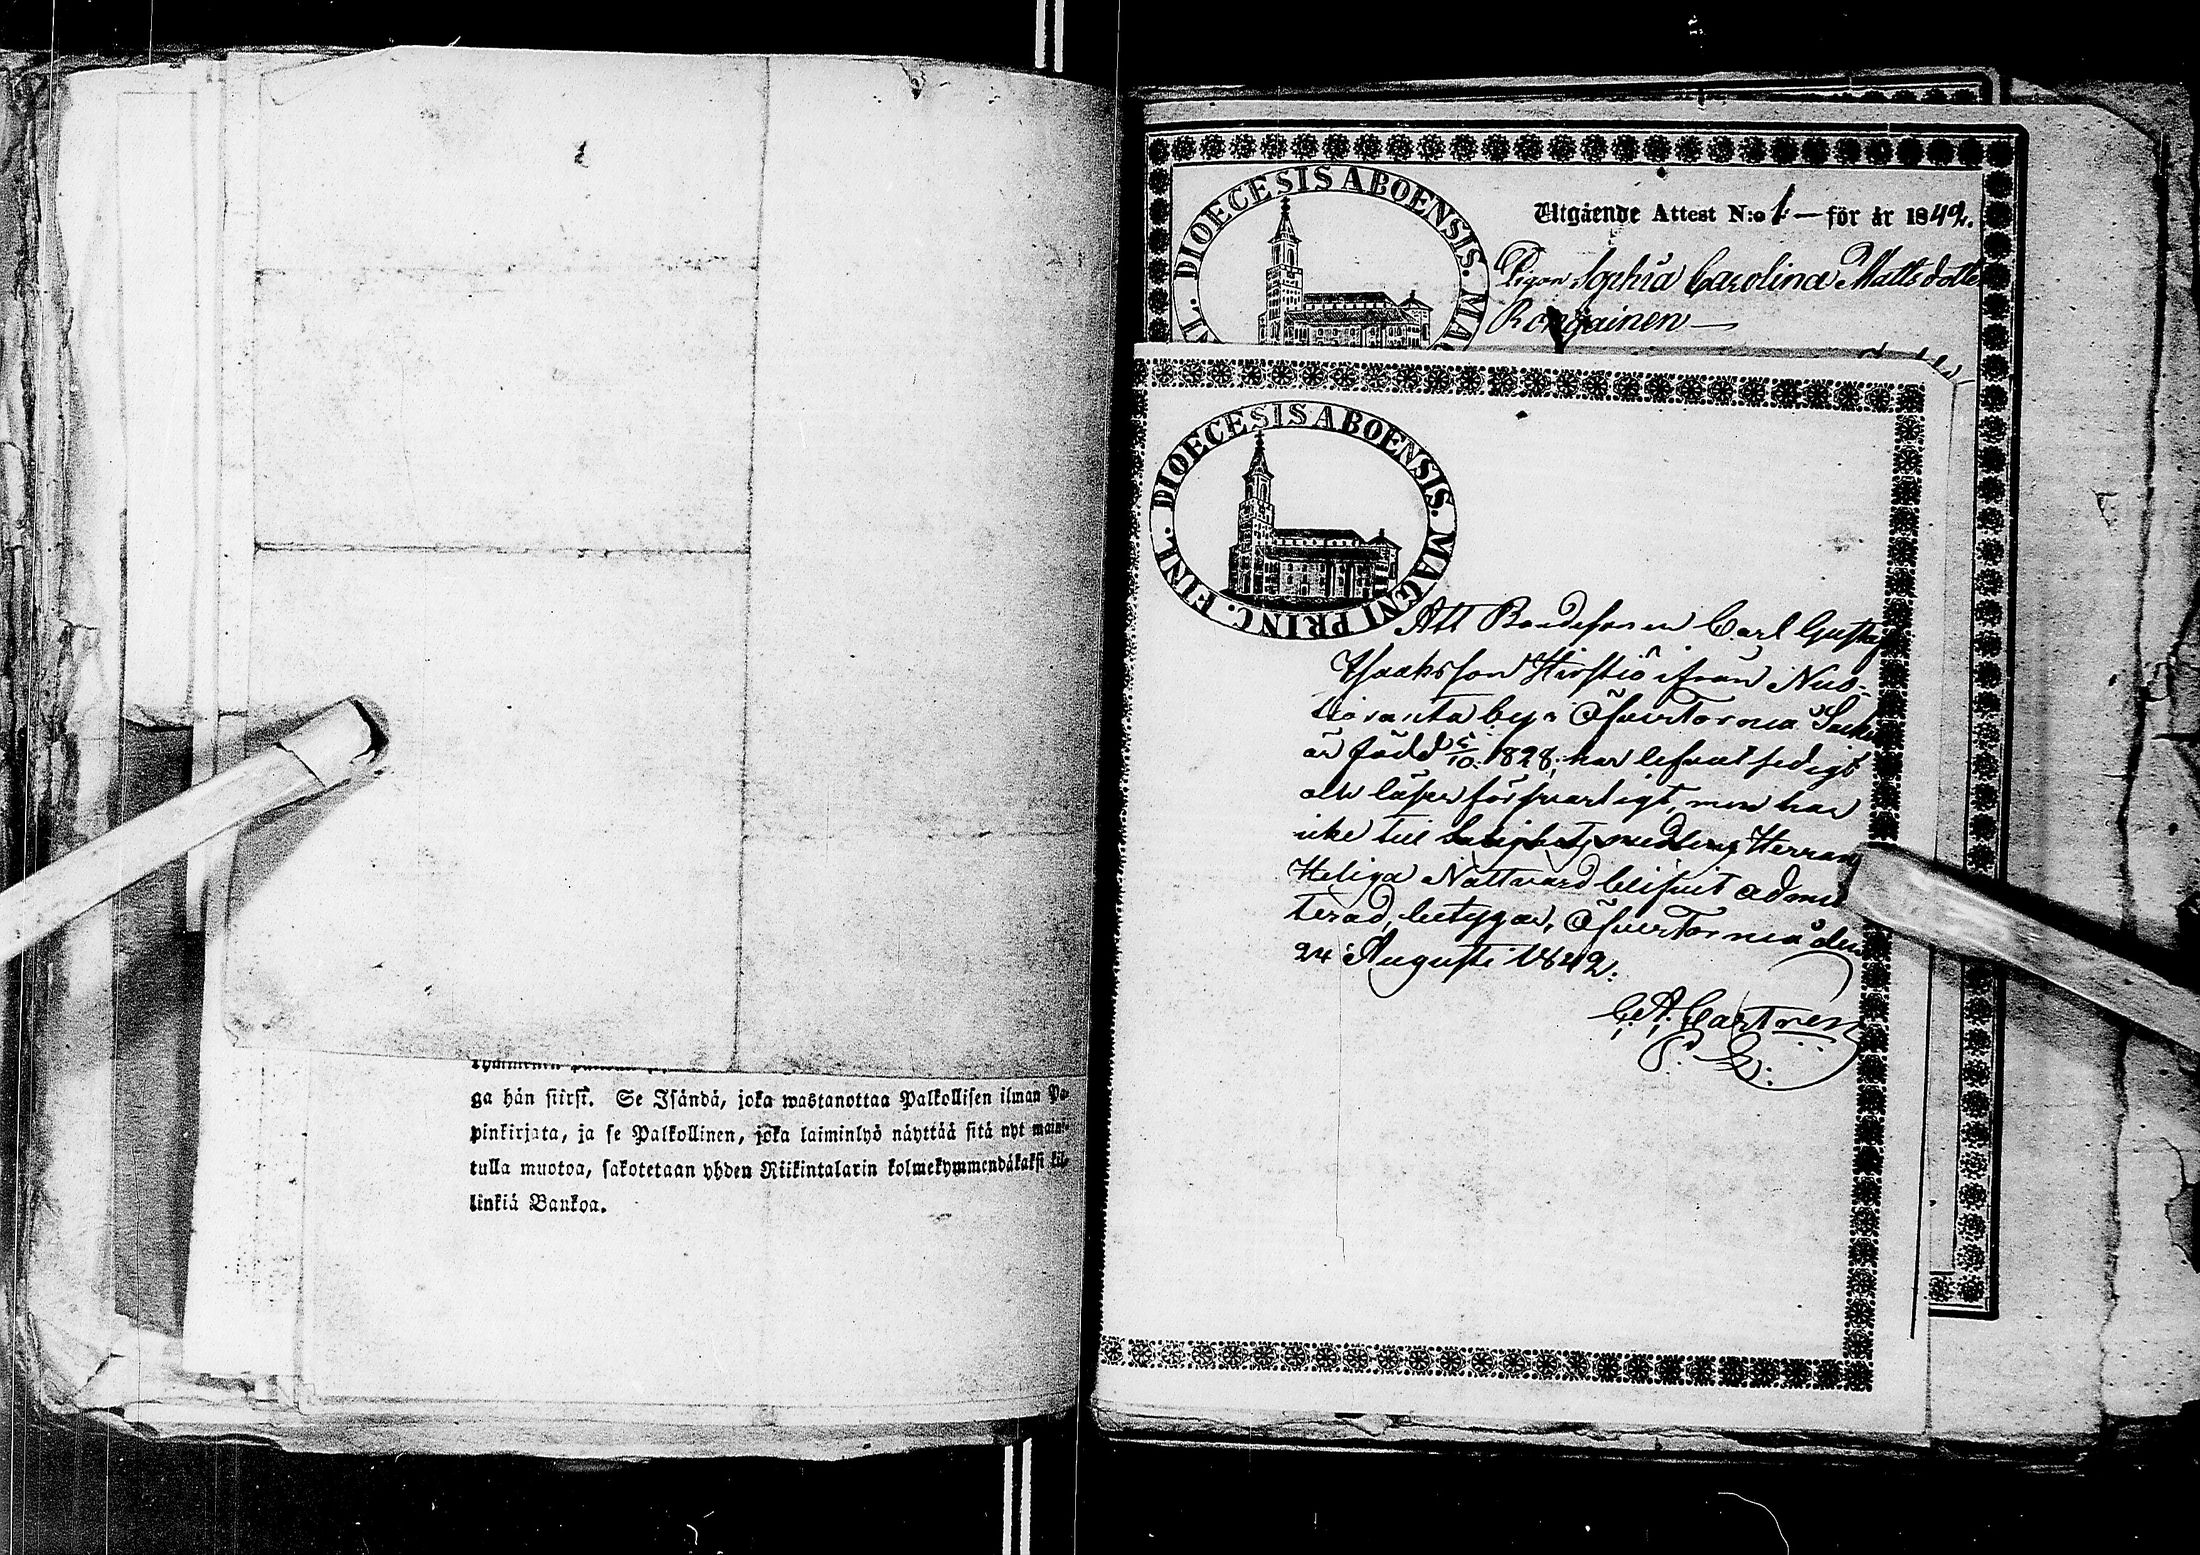 ga hän siirsi. Se Isändä, joka wastanottaa Palkollisen ilman Pa-
pinkirjata, ja se Palkollinen, joka laiminlyö näyttää sitä nyt maini-
tulla muotoa, sakotetaan yhden Riikintalarin kolmekymmendäkaksi kil-
linkiä Bankoa.
DIOECESIS ABOENSIS. MAG
Utgående Attest N:o 1 — för år 1842.
Pigan Sophia Carolina Mattsdotter
Rongainen —
DIOECESIS ABOENSIS. MAGNI PRINC. FINL.
Att Bondesonen Carl Gustaf
Isaaksson Hirsiö ifrån Nuo-
ranta by i Öfvertorneå Socken
är född 5/10 1828; har lefvat sedigt
och läser försvarligt, men har
icke till Herrans
Heliga Nattvard blifvit admit-
terad, betygar, Öfvertorneå den
24 Augusti 1842.
C. A. Castren